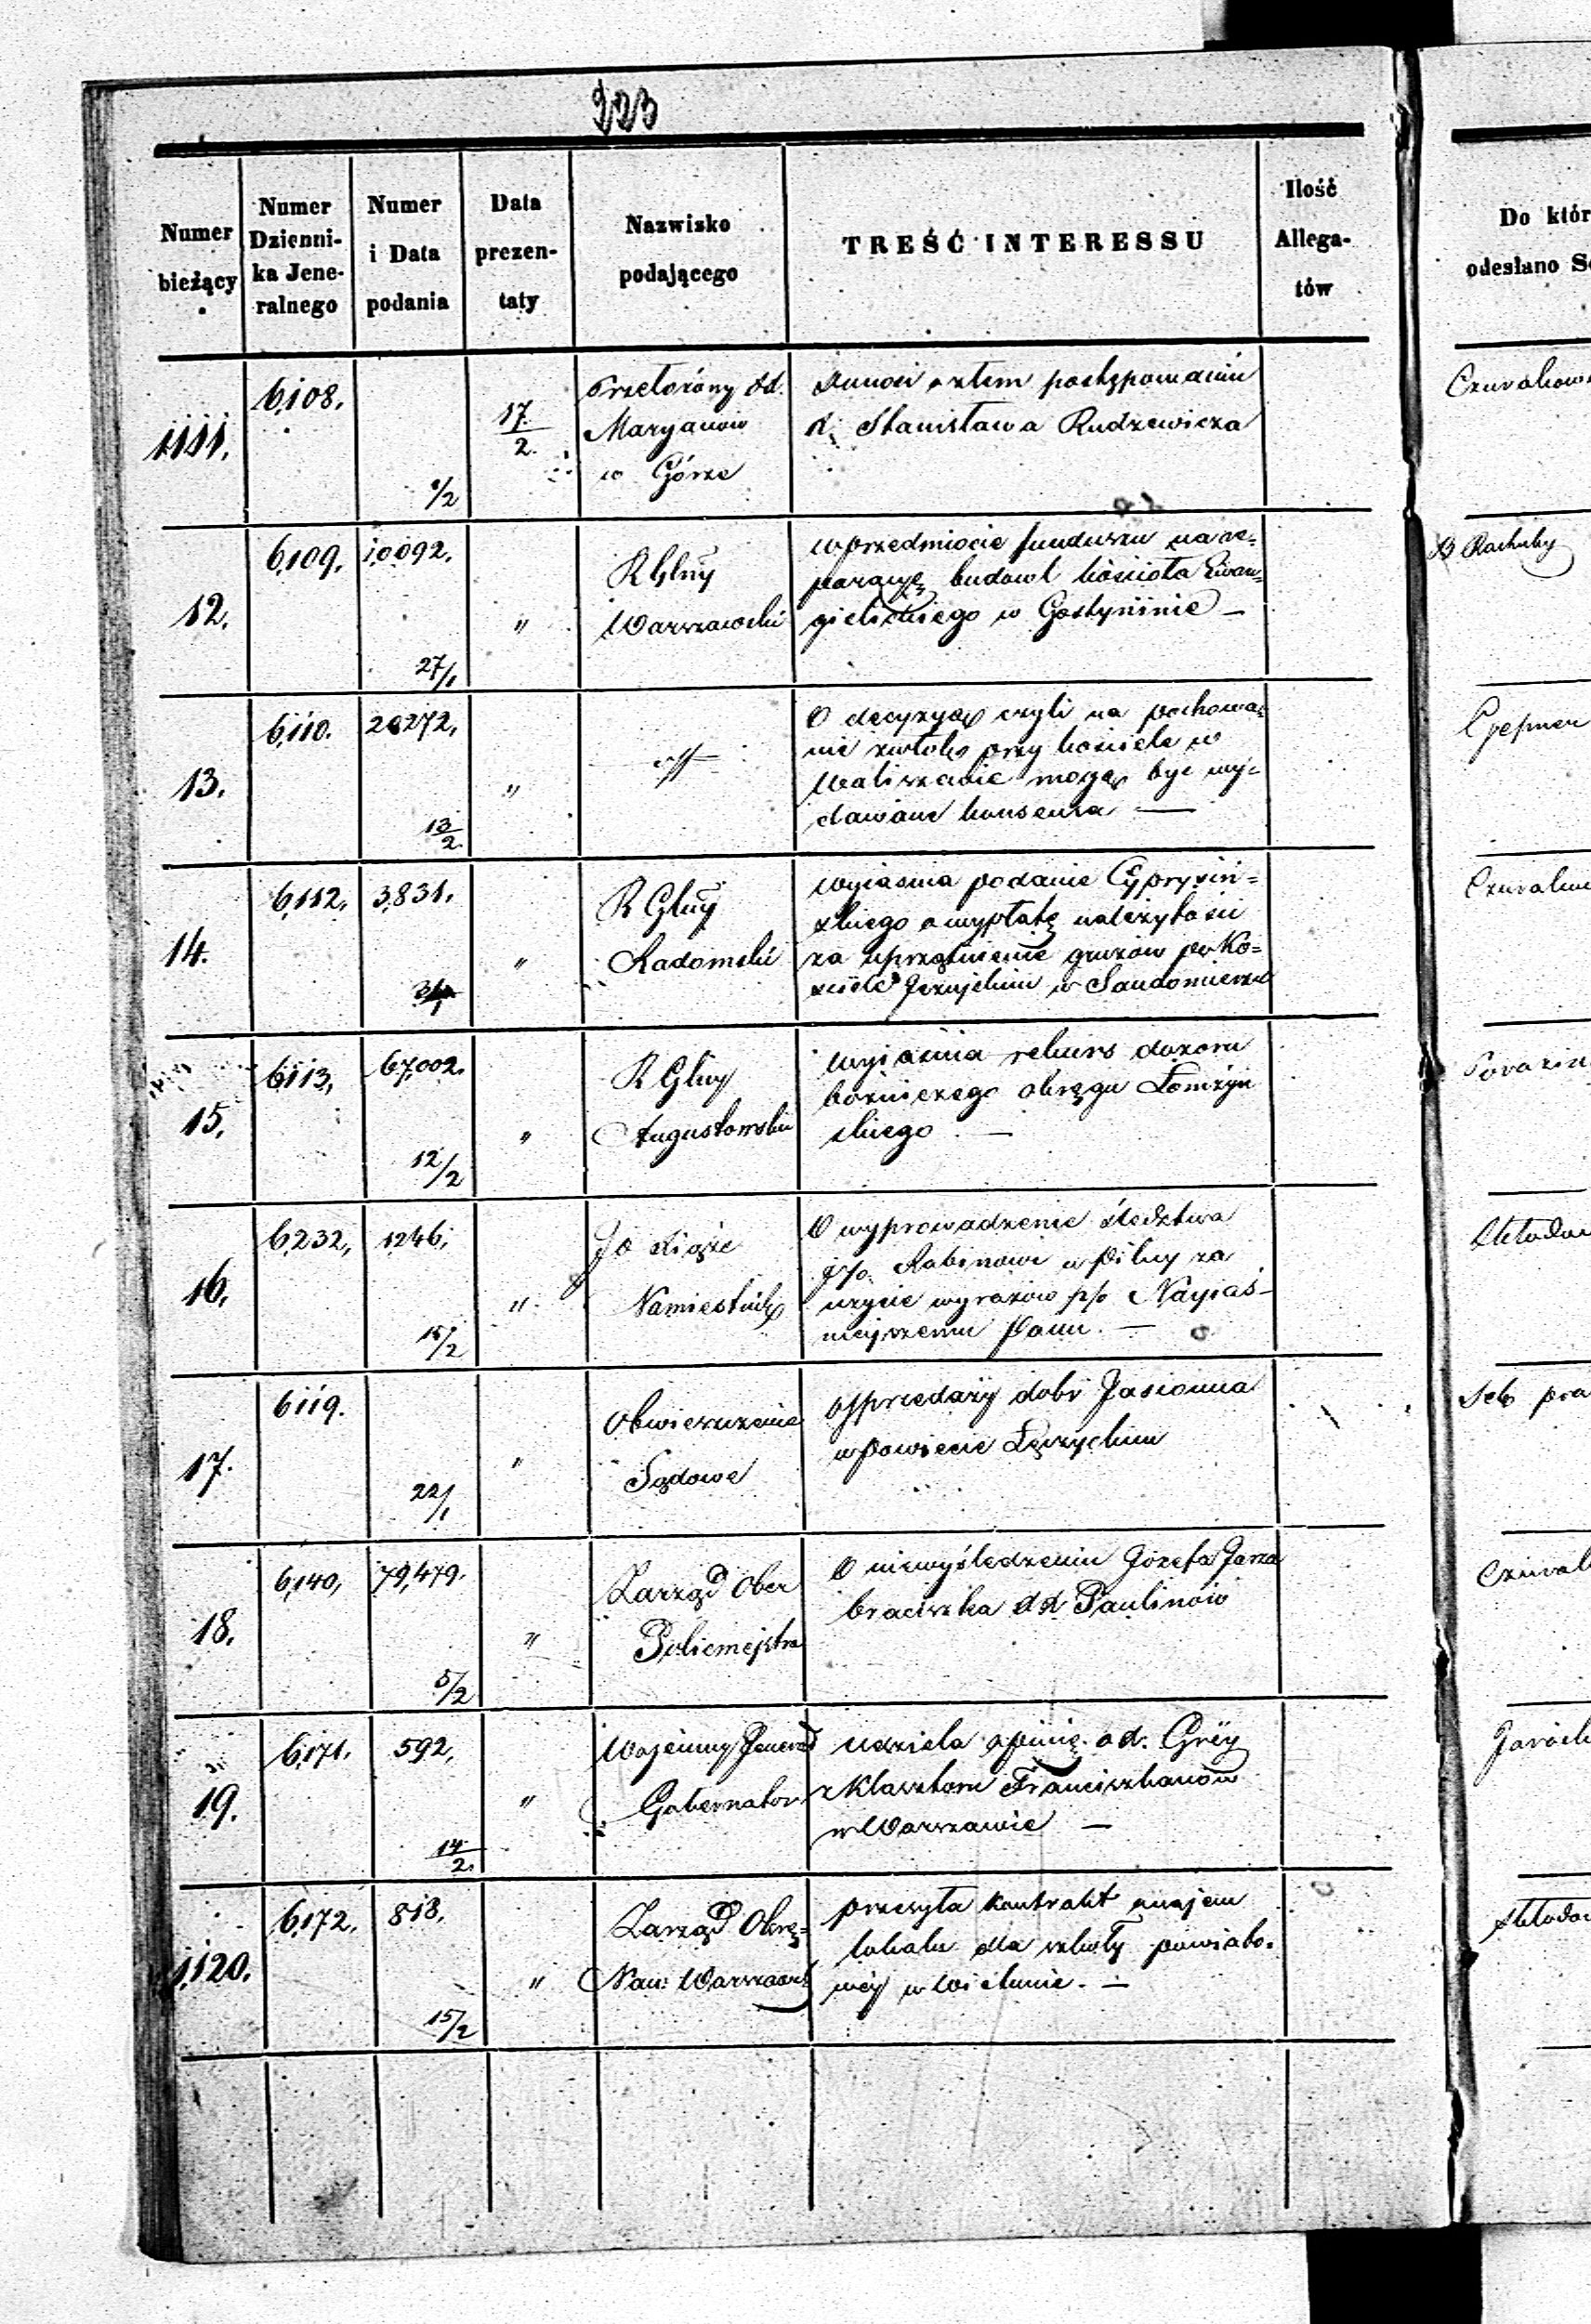 223
Numer bieżący
Numer Dzienni- ka Jene- ralnego
Numer i Data podania
Data prezen- taty
Nazwisko podającego
TREŚĆ INTERESSU
Ilość Allega- tów
Do któr
odesłano Se
1111.
6,108.
1/2
17/2.
Przełożony
Maryanów
w Górze
Donosi o złem postępowaniu
X. Stanisława Rudzewicza
12.
6,109.
10,092.
27/1
"
R Glny
Warszawski
w przedmiocie funduszu na re-
paracyę budowl kościoła Ewan-
gielickiego w Gostyninie —
B Rachuby
13.
6,110.
20272,
13/2
"
O decyzyą czyli na pochowa-
nie zwłok przy kościele w
Waliszewie mogą być wy-
dawane konsensa —
Gepner
14.
6,112,
3,831.
"
R Glny
Radomski
wyjaśnia podanie Cypryśiń-
skiego o wypłatę należytości
za uprzątnienie gruzów po Ko-
ściele Jezuickim w Sandomierzu
15.
6113,
67,002.
12/2
"
R Glny
Augustowski
wyjaśnia rekurs dozoru
bożniczego okręgu Łomżyń
skiego. —
16.
6,232,
1246,
15/2
"
JO Xiąże
Namiestnik
O wyprowadzenie śledztwa
p/o Rabinowi w Pilicy za
użycie wyrazów p/o Nayjaś-
niejszemu Panu. —
17.
6119.
22/1
"
Obwieszczenie
Sądowe
o sprzedaży dobr Jasionna
w powiecie Łęczyckim
18.
6,140,
79,479.
5/2
"
Zarząd Ober
Policmejstra
O niewyśledzeniu Józefa Jarza
braciszka XX Paulinów
19.
6,171.
592,
14/2.
"
Wojenny Jenerał
Gubernator
udziela opinię o X. Grey
z Klasztoru Franciszkanów
w Warszawie —
1,120.
6,172.
818,
15/2
"
Zarząd Okrę-
Nau: Warszaws
przesyła kontrakt najem
lokalu dla szkoły powiato-
wéj w Wieluniu. —